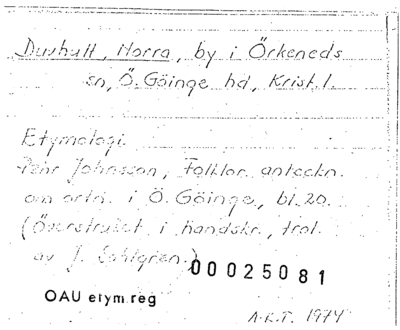 Duvhult, Norra, by i Örkeneds
sn, Ö. Göinge hd, Krist. l.
Etymologi.
Pehr Johnsson, Folklor. anteckn.
om ortn. i Ö. Göinge, bl. 20.
(Överstruket i handskr., trol.
av J. Sahlgren.)
00025081
OAU etym.reg
A.R.T. 1974